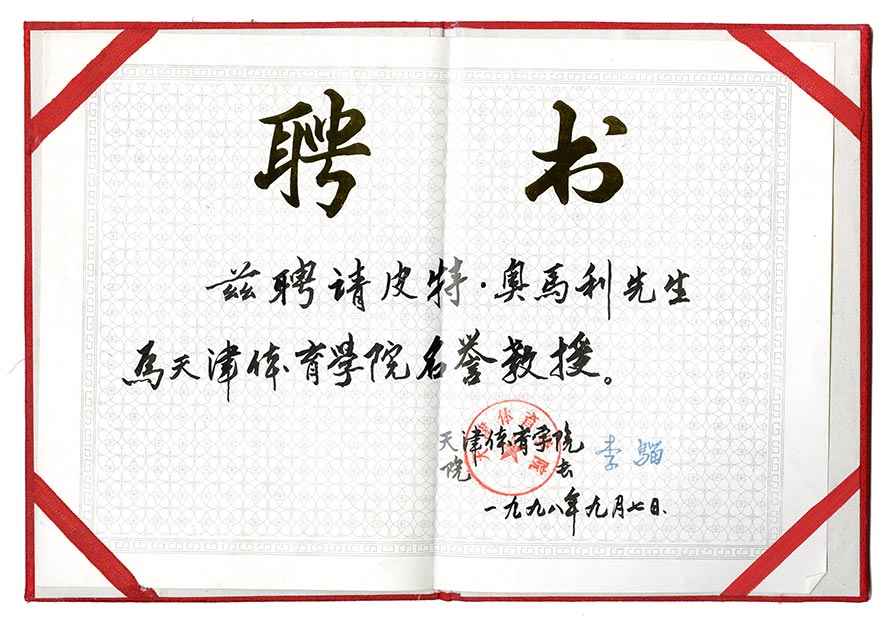 聘书
兹聘请皮特·奥馬利先生
為天津体育學院名誉教授。
天津体育学院
院长 李骝
一九九八年九月七日.
天津体育学院